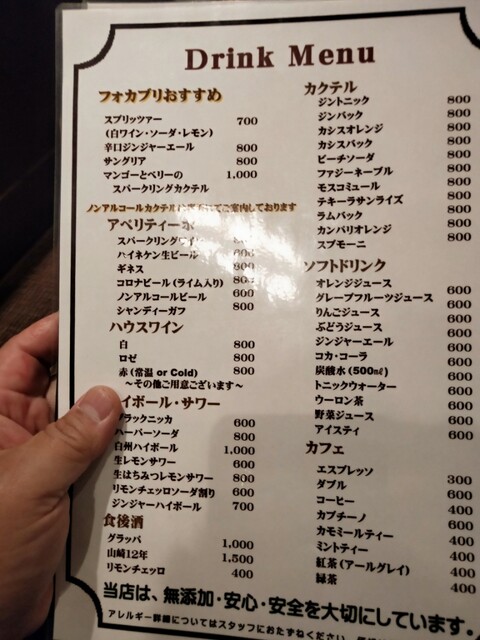 Drink Menu
フォカブリおすすめ
スプリッツァー 700
(白ワイン・ソーダ・レモン)
辛口ジンジャーエール 800
サングリア 800
マンゴーとベリーの 1,000
スパークリングカクテル
ノンアルコールカクテルは てご案内しております
アペリティーボ
スパークリングワイン
ハイネケン生ビール 600
ギネス 800
コロナビール (ライム入り) 800
ノンアルコールビール 600
シャンディーガフ 800
ハウスワイン
白 800
ロゼ 800
赤 (常温 or Cold) 800
～その他ご用意ございます～
イボール・サワー
ブラックニッカ 600
ハーパーソーダ 800
白州ハイボール 1,000
生レモンサワー 600
生はちみつレモンサワー 800
リモンチェッロソーダ割り 600
ジンジャーハイボール 700
食後酒
グラッパ 1,000
山崎12年 1,500
リモンチェッロ 400
カクテル
ジントニック 800
ジンバック 800
カシスオレンジ 800
カシスバック 800
ピーチソーダ 800
ファジーネーブル 800
モスコミュール 800
テキーラサンライズ 800
ラムバック 800
カンパリオレンジ 800
スプモーニ 800
ソフトドリンク
オレンジジュース 600
グレープフルーツジュース 600
りんごジュース 600
ぶどうジュース 600
ジンジャーエール 600
コカ・コーラ 600
炭酸水 (500㎖) 600
トニックウォーター 600
ウーロン茶 600
野菜ジュース 600
アイスティ 600
カフェ
エスプレッソ 300
ダブル
コーヒー 400
カプチーノ 600
カモミールティー 400
ミントティー 400
紅茶 (アールグレイ) 400
緑茶 400
当店は、無添加・安心・安全を大切にしています。
アレルギー詳細についてはスタッフにおたずねください。